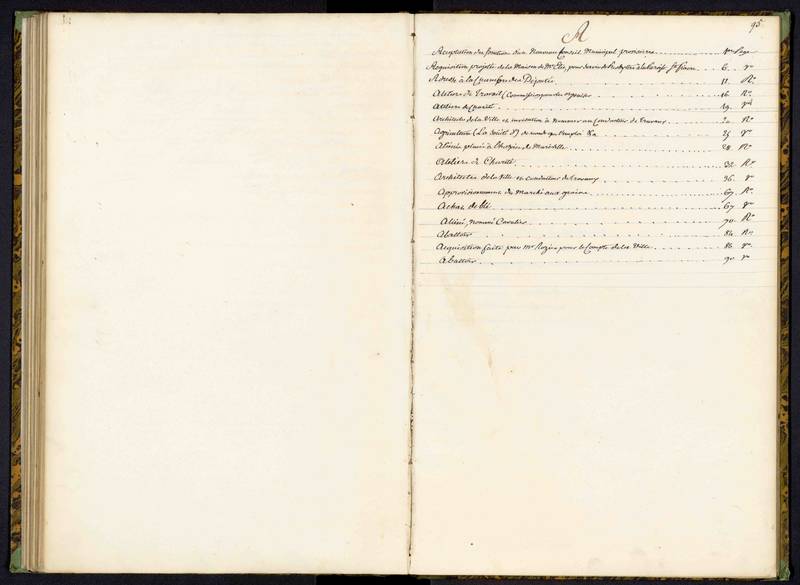 95
A
Acceptation des fonctions d'un Nouveau Conseil Municipal provisoire 1er Page
Acquisition projetée de la Maison de Mr pour servir de Presbytère à la Paroisse St 6 Vo
Adresse à la Chambre des Députés 11 Ro
Ateliers de Travail (Commission pour les organiser 16 Ro
Ateliers de Charité 19 Vo
Architecte de la Ville et invitation à nommer un Conducteur de Travaux 20 Ro
Agriculture (La Société d') demande que l'emploi &a 25 Vo
Aliénée placée à l'hospice de Maréville 28 Ro
Ateliers de Charité 32 Ro
Architectes de la Ville et conducteur de travaux 36 Vo
Approvisionnement du Marché aux grains 67 Ro
Achat de blé 67 Vo
Aliéné, nommé Cavalier 70 Ro
Abattoir 84 Ro
Acquisition faite par Mr Rozier pour le Compte de la Ville 86 Vo
Abattoir 90 Vo